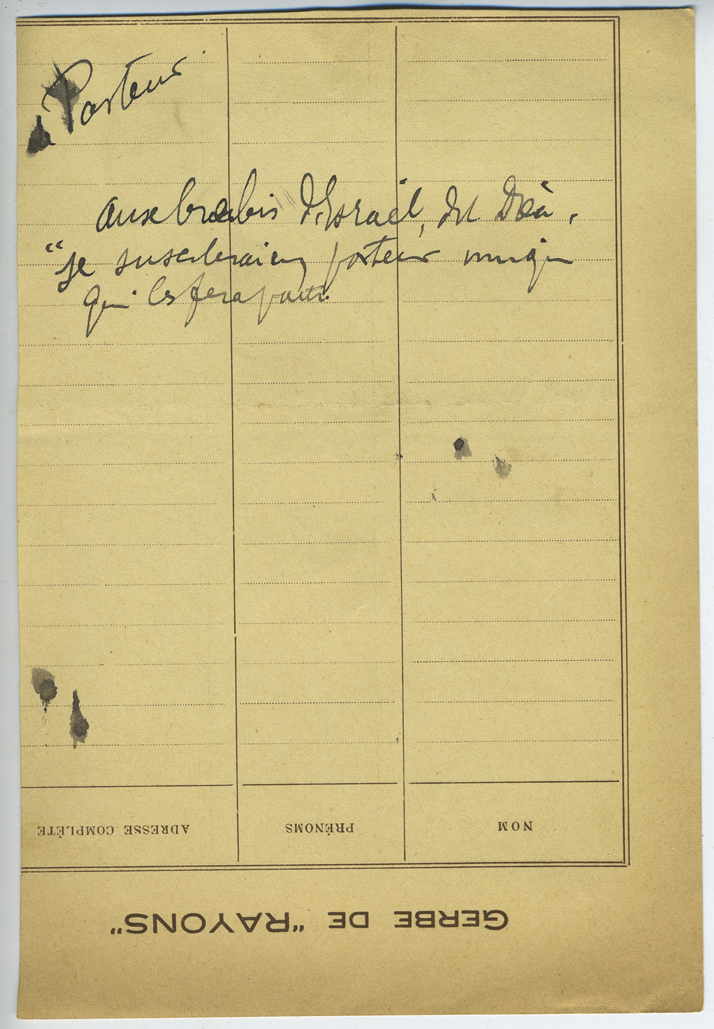 Pasteur
aux brebis d'Israël, dit Dieu,
"je susciterai un pasteur unique
qui les fera paitre
NOM PRÉNOMS ADRESSE COMPLÈTE
GERBE DE "RAYONS"